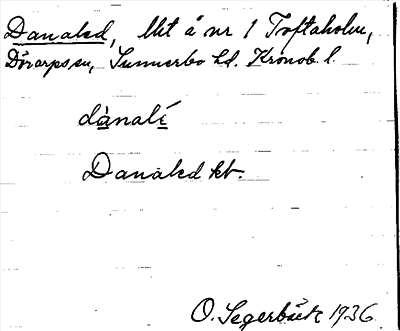 Danalid, lht å nr 1 Toftaholm,
Dörarps sn, Sunnerbo hd. Kronob. l.
dànalí
Danalid kb.
O. Segerbäck 1936